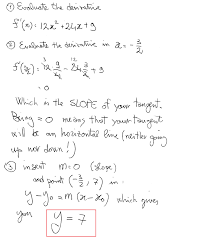 ① Evaluate the derivative
f'(x) = 12x² + 24x + 9
② Evaluate the derivative in x = -3/2
f'(3/2) = 12 · 9/4 - 24 · 3/2 + 9
= 0
Which is the SLOPE of your tangent.
Being = 0 means that your tangent
will be an horizontal line (neither going
up nor down!)
③ insert m=0 (slope)
and point (-3/2, 7) in:
y-y₀ = m(x-x₀) which gives
you y = 7